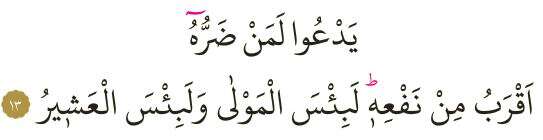 يَدْعُوا لَمَنْ ضَرُّهُٓ
اَقْرَبُ مِنْ نَفْعِهٖۜ لَبِئْسَ الْمَوْلٰى وَلَبِئْسَ الْعَشٖيرُ ١٣